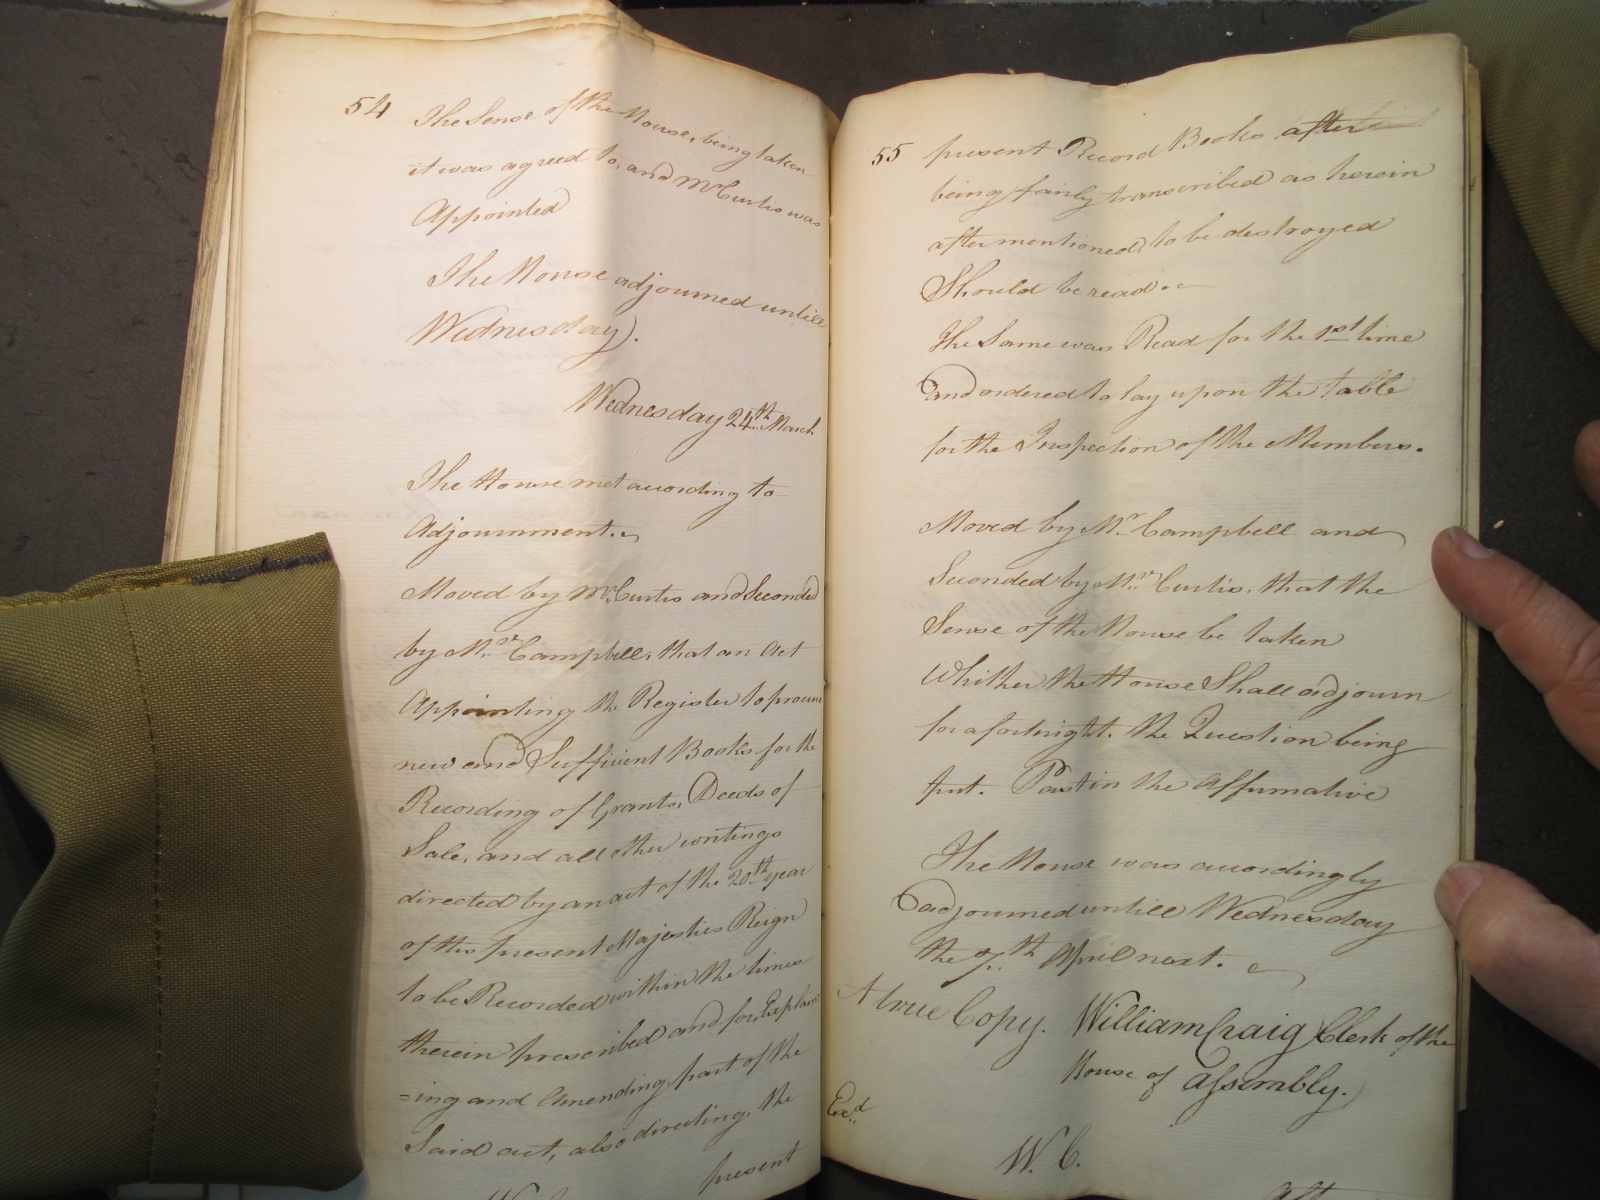 54
The Sense of the House, being taken
it was agreed to, and Mr Curtis was
Appointed
The House adjourned untill
Wednesday.
Wednesday 24th March
The House met according to
Adjournment.
Moved by Mr Curtis and Seconded
by Mr Campbell, that an Act
Appointing the Register to procure
new and Sufficient Books for the
Recording of Grants, Deeds of
Sale, and all other writings
directed by an act of the 20th year
of this present Majesties Reign
to be Recorded within the times
therein prescribed and for Explain
=ing and Amending part of the
Said act, also directing, the
present
55
present Record Books after
being fairly transcribed as herein
after mentioned, to be destroyed
Should be read.
The Same was Read for the 1st time
and ordered to lay upon the table
for the Inspection of the Members.
Moved by Mr Campbell and
Seconded by Mr Curtis, that the
Sense of the House be taken
Whither the House Shall adjourn
for a fortnight. the Question being
put. Past in the Affirmative
The House was accordingly
adjourned untill Wednesday
the 7th April next.
A true Copy. William Craig Clerk of the
House of Assembly.
Exd
W. C.